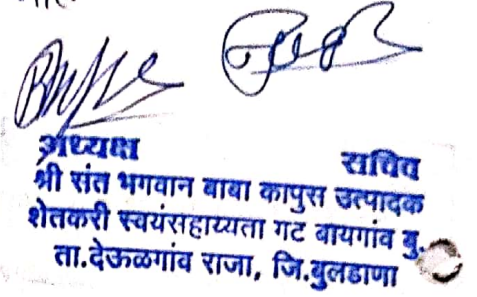 अध्यक्ष सचिव
श्री संत भगवान बाबा कापुस उत्पादक
शेतकरी स्वयंसहाय्यता गट बायगांव बु.
ता.देऊळगांव राजा, जि.बुलडाणा